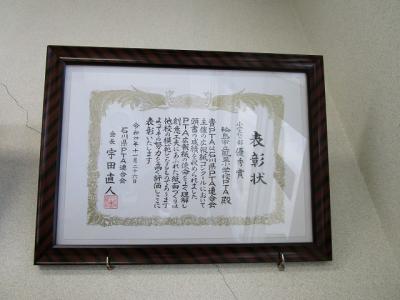 表彰状
小学校の部 優秀賞
輪島市立鳳至小学校PTA 殿
貴PTAは石川県PTA連合会
主催の広報紙コンクールにおいて
頭書の成績を収められました
PTA広報紙の使命をよく理解し
創意工夫にあふれた紙面づくりは
他校の模範となるものであります
よってその努力を高く評価しここに
表彰いたします
令和四年十一月二十六日
石川県PTA連合会
会長 宇田直人